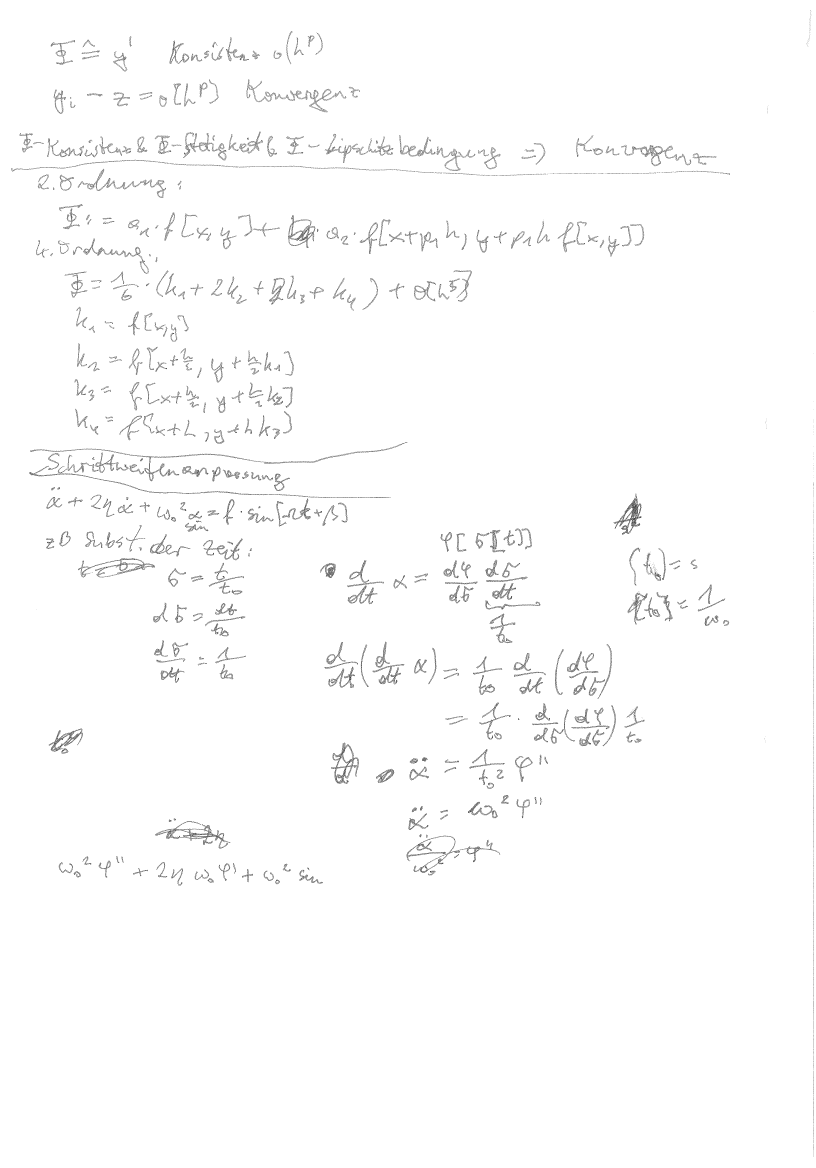 Φ ≙ y' Konsistenz o(hᴾ)
yᵢ − z = o[hᴾ] Konvergenz
Φ-Konsistenz & Φ-Stetigkeit & Φ-Lipschitzbedingung ⇒ Konvergenz
2. Ordnung:
Φ := a₁·f[x,y] + a₂·f[x+p₁h, y+p₁h f[x,y]]
4. Ordnung:
Φ = 1/6·(k₁ + 2k₂ + 2k₃ + k₄) + o[h⁵]
k₁ = f[x,y]
k₂ = f[x+h/2, y+h/2 k₁]
k₃ = f[x+h/2, y+h/2 k₂]
k₄ = f[x+h, y+h k₃]
Schrittweitenanpassung
α̈ + 2η α̇ + ω₀² sin α = f·sin[Ωt+β]
zB Subst. der Zeit:
σ = t/t₀
dσ = dt/t₀
dσ/dt = 1/t₀
φ[σ[t]]
d/dt α = dφ/dσ dσ/dt
1/t₀
[t₀] = s
[t₀] = 1/ω₀
d/dt (d/dt α) = 1/t₀ d/dt (dφ/dσ)
= 1/t₀ · d/dσ (dφ/dσ) 1/t₀
α̈ = 1/t₀² φ''
α̈ = ω₀² φ''
ω₀² φ'' + 2η ω₀ φ' + ω₀² sin